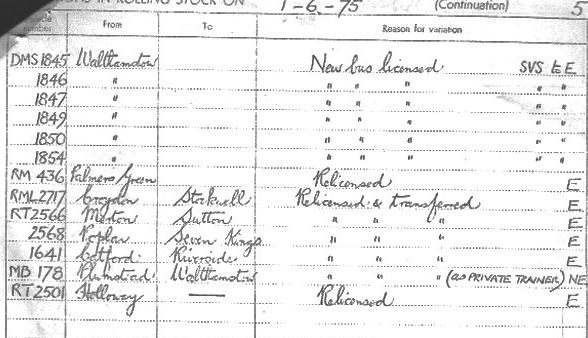 IN ROLLING STOCK ON 1-6-75 (Continuation) 5
From To Reason for variation
DMS 1845 Walthamstow New bus licensed SVS to E
1846 " " " " " "
1847 " " " " " "
1849 " " " " " "
1850 " " " " " "
1854 " " " " " "
RM 436 Palmers Green Relicensed E
RML2717 Croydon Stockwell Relicensed & transferred E
RT2566 Merton Sutton " " " E
2568 Poplar Seven Kings " " " E
1641 Catford Riverside " " " E
MB 178 Plumstead Walthamstow " " " (as PRIVATE TRAINER) NE
RT2501 Holloway — Relicensed E